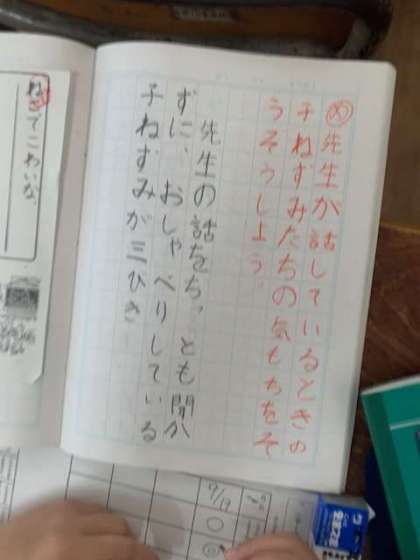 め先生が話しているときの
子ねずみたちの気もちをそ
うぞうしよう。
先生の話をちっとも聞か
ずに、おしゃべりしている
子ねずみが三びき
ねこでこわいな。
7/19